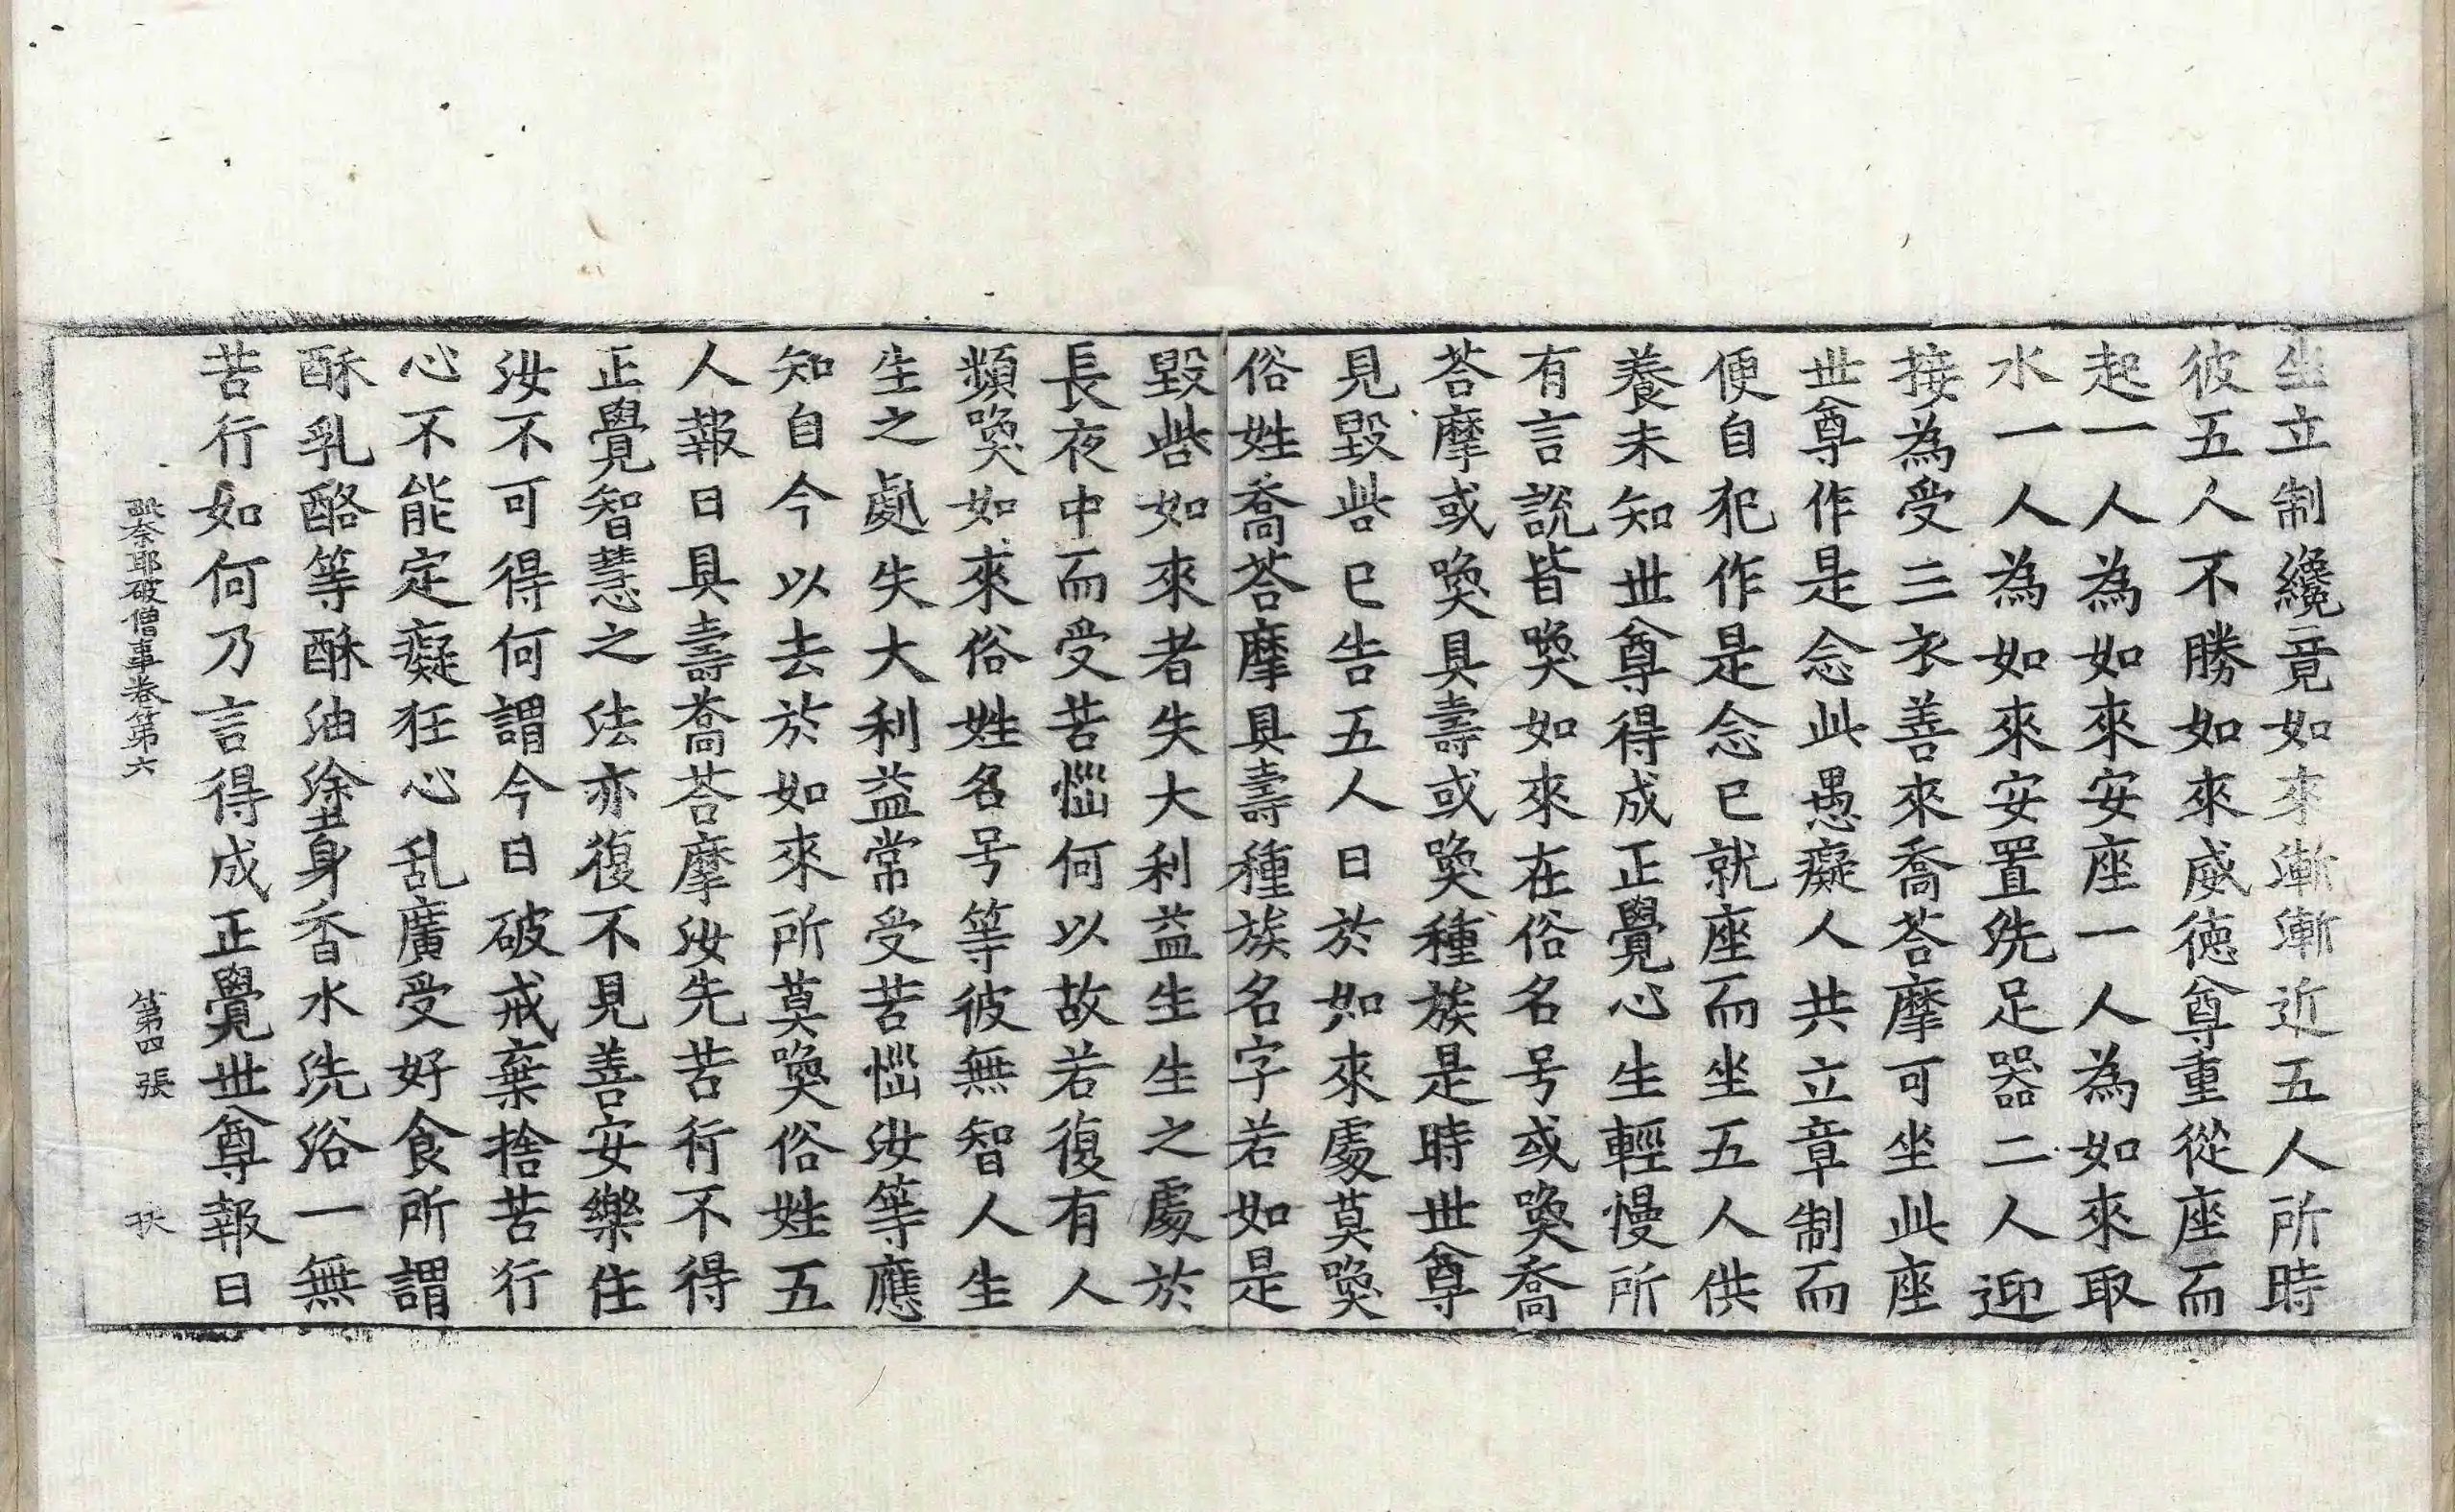 坐立制纔竟如來漸漸近五人所時
彼五人不勝如來威德尊重從座而
起一人為如來安座一人為如來取
水一人為如來安置洗足器二人迎
接為受三衣善來喬荅摩可坐此座
世尊作是念此愚癡人共立章制而
便自犯作是念已就座而坐五人供
養未知世尊得成正覺心生輕慢所
有言說皆喚如來在俗名号或喚喬
荅摩或喚具壽或喚種族是時世尊
見毀呰已告五人曰於如來處莫喚
俗姓喬荅摩具壽種族名字若如是
毀呰如來者失大利益生生之處於
長夜中而受苦惱何以故若復有人
頻喚如來俗姓名号等彼無智人生
生之處失大利益常受苦惱汝等應
知自今以去於如來所莫喚俗姓五
人報曰具壽喬荅摩汝先苦行不得
正覺智慧之法亦復不見善安樂住
汝不可得何謂今日破戒棄捨苦行
心不能定癡狂心乱廣受好食所謂
酥乳酪等酥油塗身香水洗浴一無
苦行如何乃言得成正覺世尊報曰
毗奈耶破僧事卷第六 第四張 牀